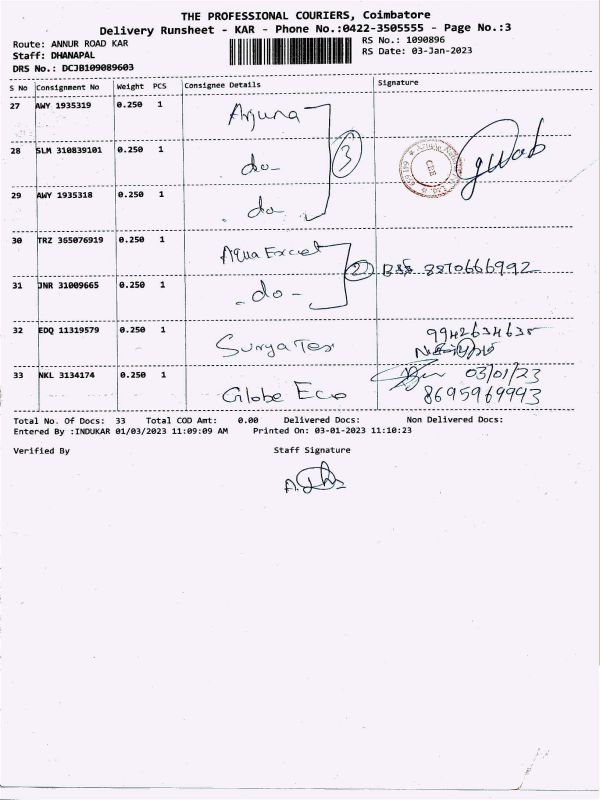 THE PROFESSIONAL COURIERS, Coimbatore
Delivery Runsheet - KAR - Phone No.:0422-3505555 - Page No.:3
Route: ANNUR ROAD KAR RS No.: 1090896
Staff: DHANAPAL RS Date: 03-Jan-2023
DRS No.: DCJB109089603
S No Consignment No Weight PCS Consignee Details Signature
27 AWY 1935319 0.250 1 Arjuna
28 SLM 310839101 0.250 1 do- 3
29 AWY 1935318 0.250 1 do-
30 TRZ 365076919 0.250 1 Aqua Excel 2 8870666992
31 JNR 31009665 0.250 1 -do-
32 EDQ 11319579 0.250 1 Surya Tex 9942634635
33 NKL 3134174 0.250 1 Globe Eco 03/01/23
8695969943
Total No. Of Docs: 33 Total COD Amt: 0.00 Delivered Docs: Non Delivered Docs:
Entered By :INDUKAR 01/03/2023 11:09:09 AM Printed On: 03-01-2023 11:10:23
Verified By Staff Signature